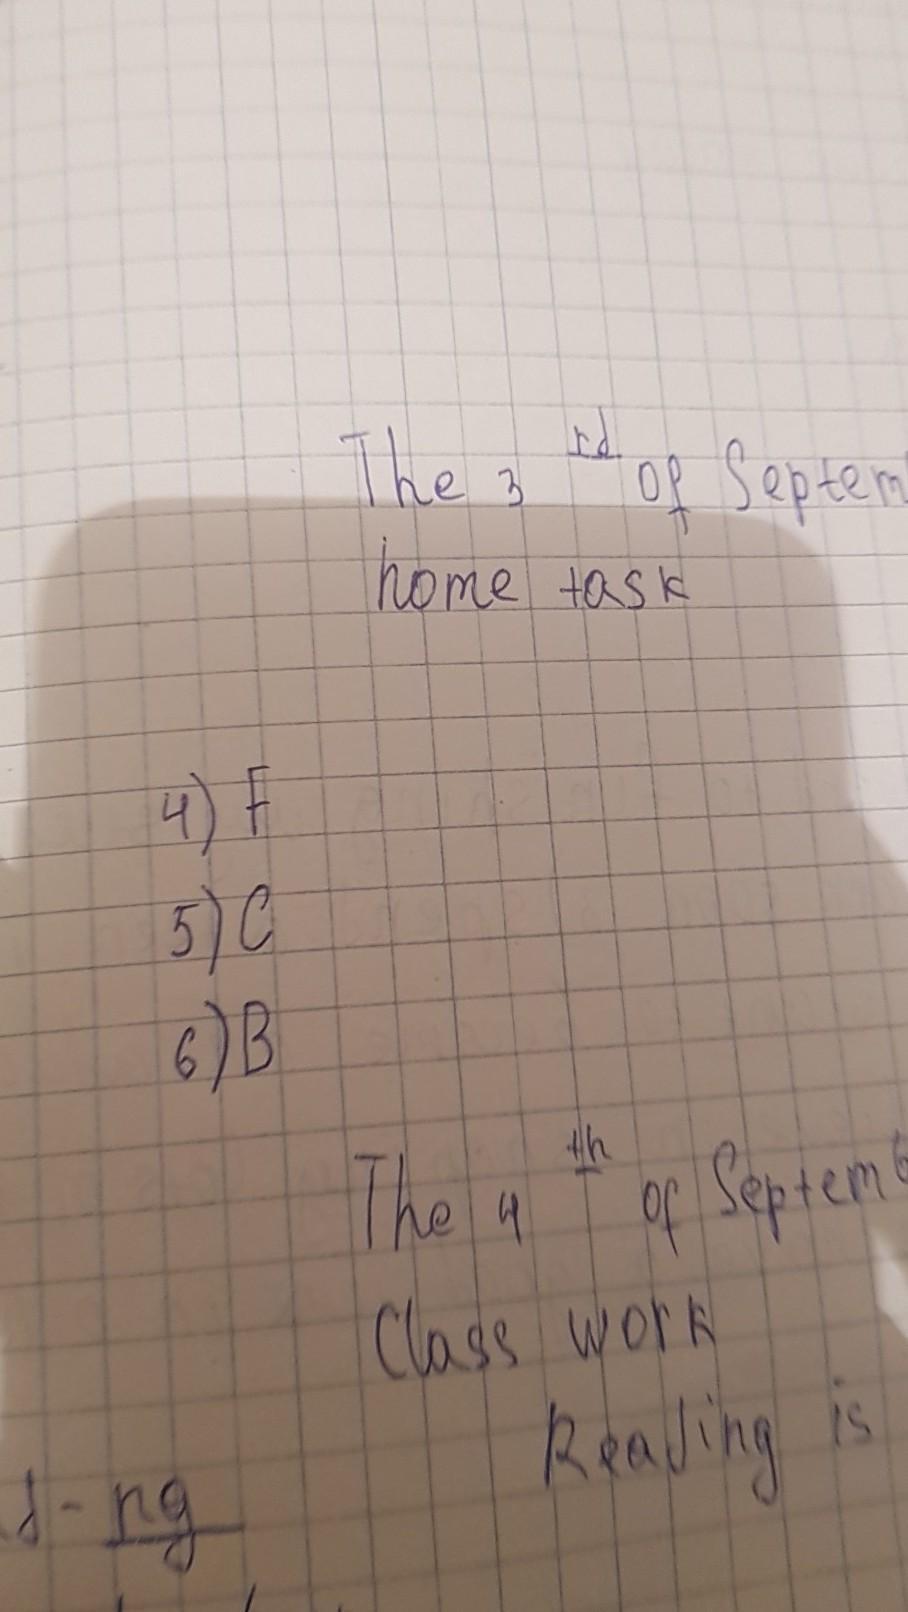 The 3 rd of Septem
home task
4) F
5) C
6) B
The 4 th of Septemb
Class work
Reading is
- ng